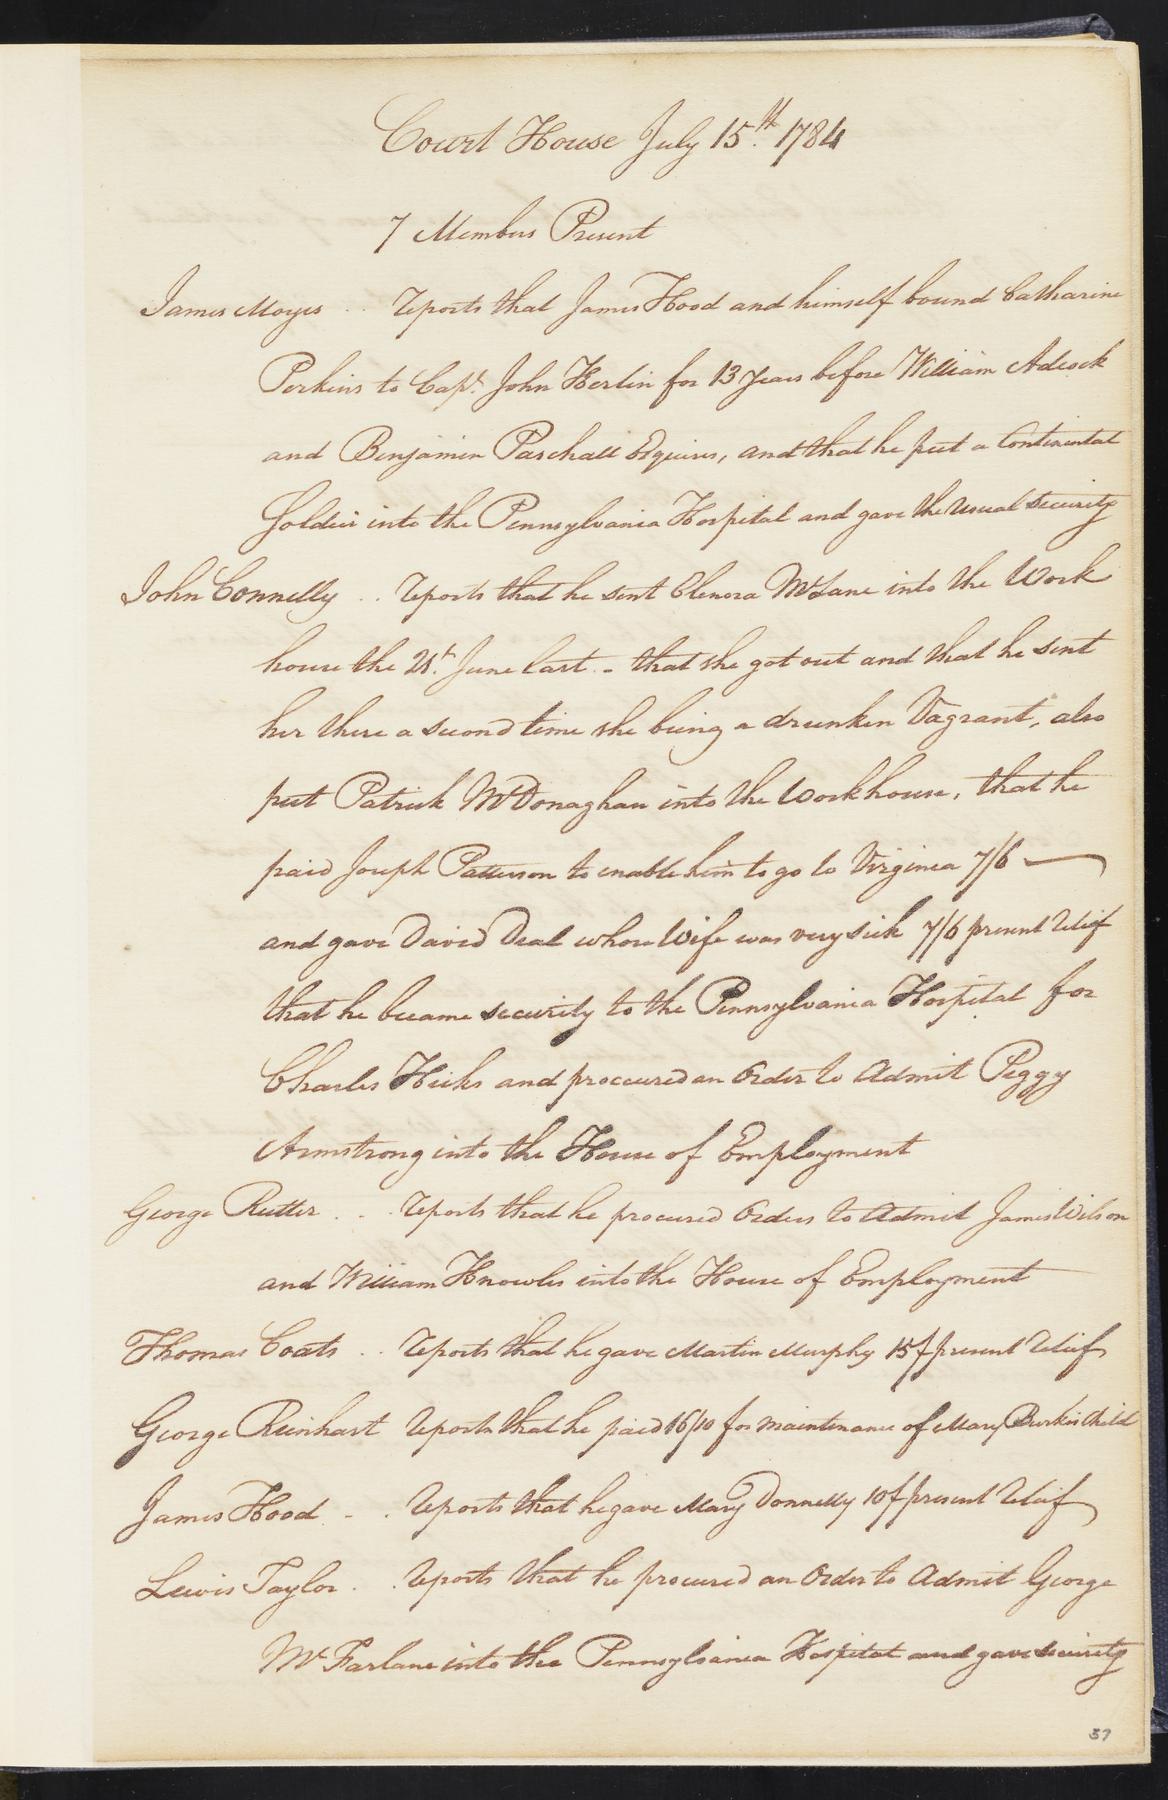 Court House July 15th. 1784
7 Members Present
James Moyes . . reports that James Hood and himself bound Catharine
Perkins to Capt. John Herlin for 13 years before William Adcock
and Benjamin Paschall Esquires, and that he put a Continental
Soldier into the Pennsylvania Hospital and gave the usual security
John Connelly . . reports that he sent Elenora McLane into the Work
house the 21st. June last - that she got out and that he sent
her there a second time she being a drunken Vagrant, also
put Patrick McDonaghan into the Workhouse, that he
paid Joseph Patterson to enable him to go to Virginia 7/6 —
and gave David Deal whose Wife was very sick 7/6 present relief
that he became security to the Pennsylvania Hospital for
Charles Hicks and proccured an Order to Admit Peggy
Armstrong into the House of Employment
George Rutter . . reports that he procured Orders to Admit James Wilson
and William Knowles into the House of Employment
Thomas Coats . . reports that he gave Martin Murphy 15/ present relief
George Reinhart reports that he paid 16/10 for maintenance of Mary Burkis Child
James Hood - . reports that he gave Mary Donnelly 10/ present relief
Lewis Taylor . . reports that he procured an Order to Admit George
McFarlane into the Pennsylvania Hospital and gave security
37